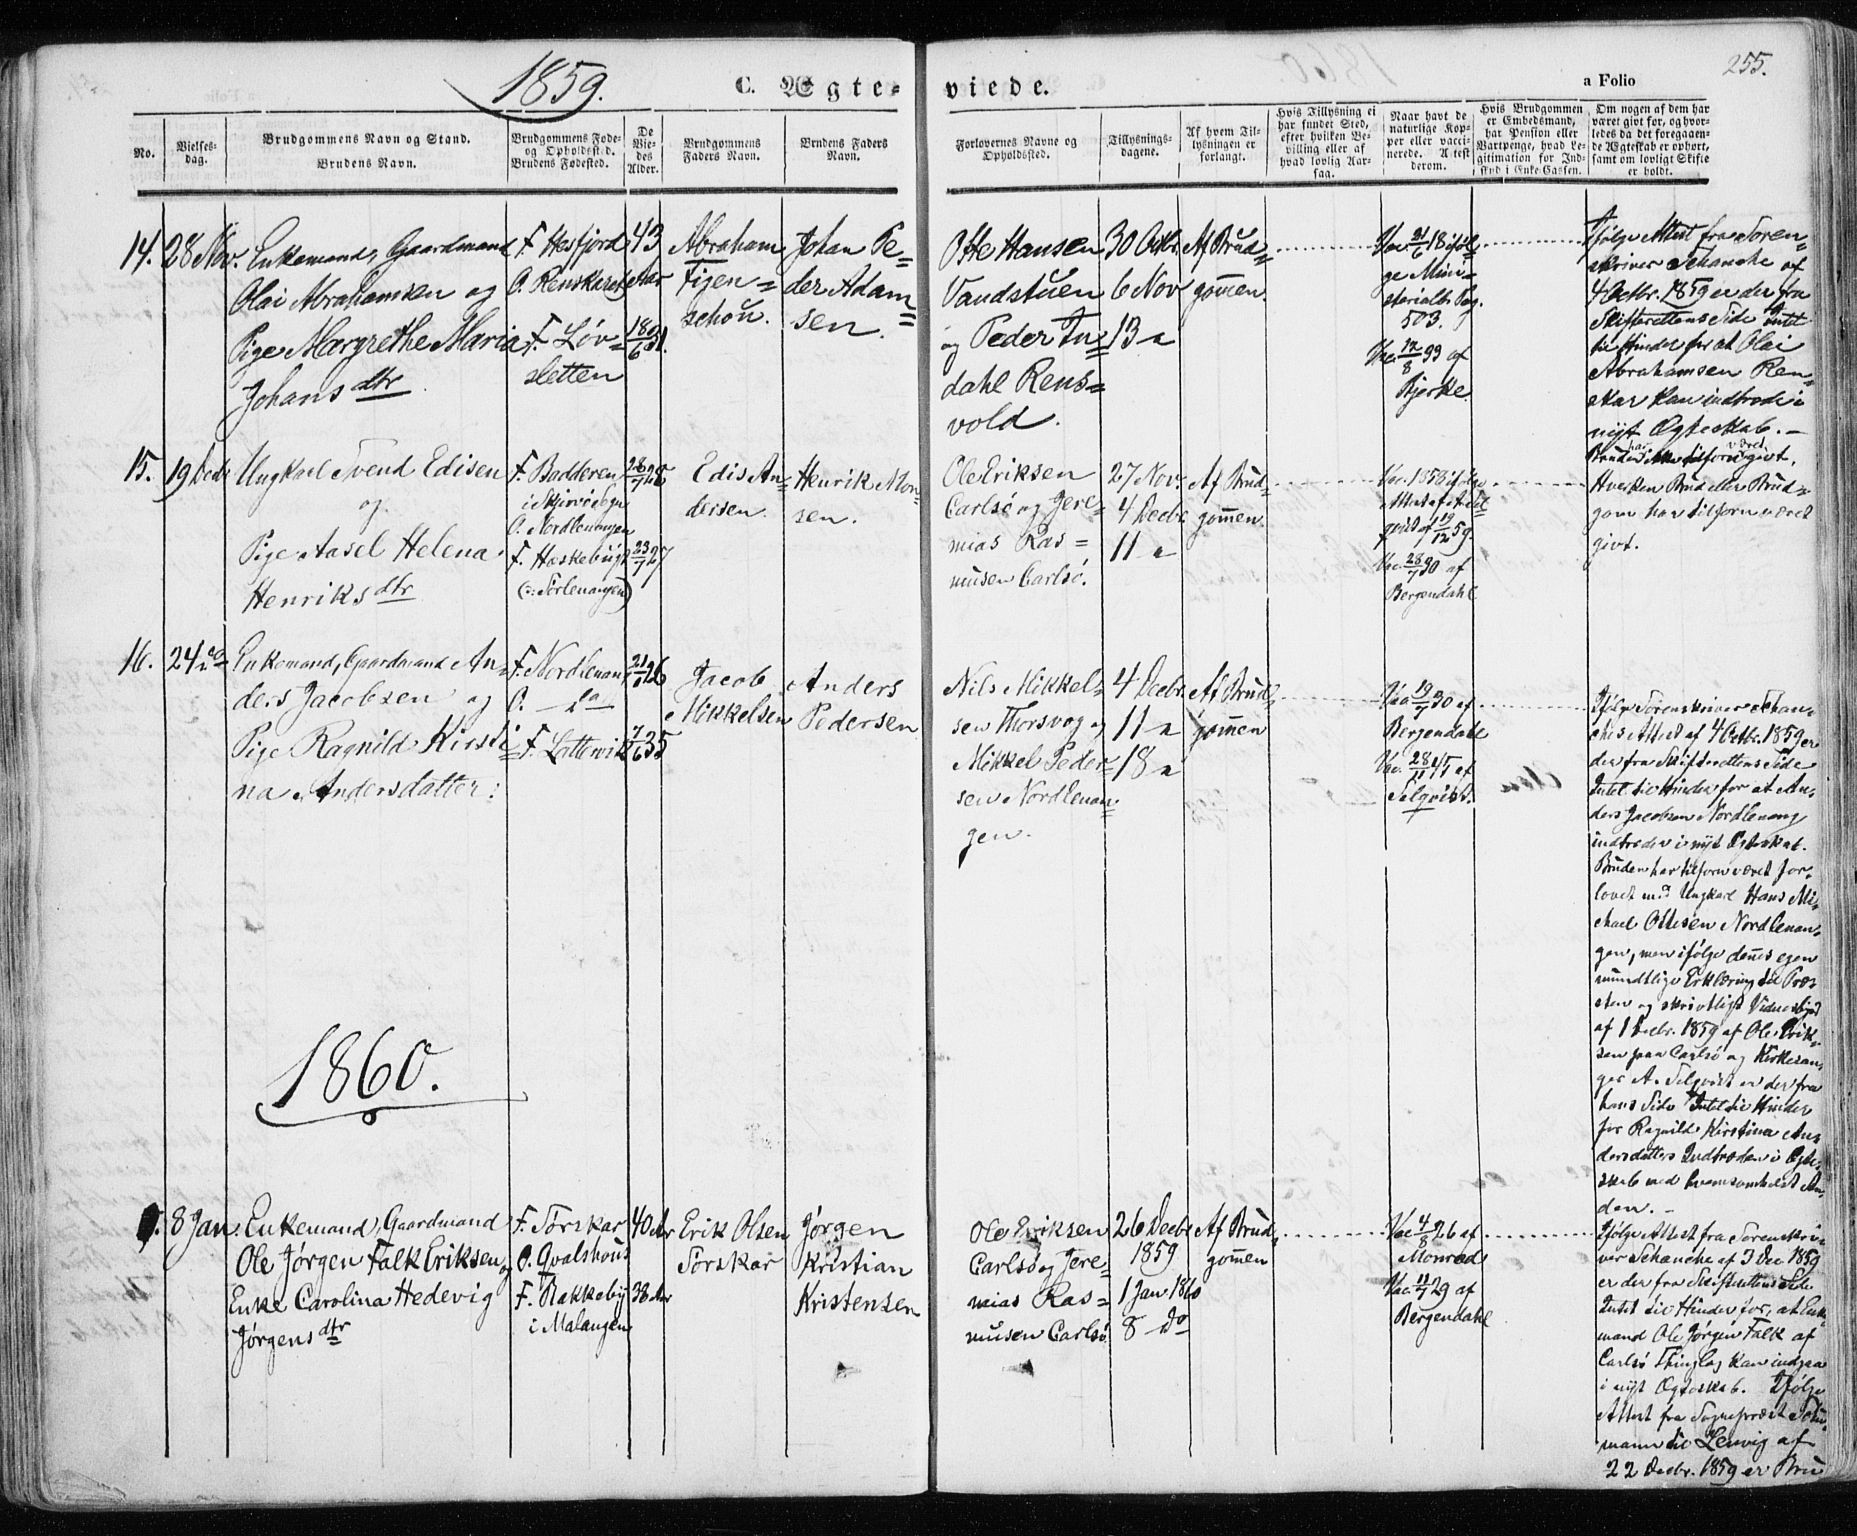 1859.
C. Ægte-
viede.
1860
a Folio
255.
No.
Vielses-
dag.
Brudgommens Navn og Stand.
Brudens Navn.
Brudgommens Føde-
og Opholdssted.
Brudens Fødested.
De
Vie-
des
Alder.
Brudgommens
Faders Navn.
Brudens Faders
Navn.
Forlovernes Navne og
Opholdssted.
Tillysnings-
dagene.
Af hvem Til-
lysningen er
forlangt.
Hvis Tillysning ei
har fundet Sted,
efter hvilken Be-
villing eller af
hvad lovlig Aar-
sag.
Naar havt de
naturlige Kop-
per eller vacci-
nerede. Attest
derom.
Hvis Brudgommen
er Embedsmand,
har Pension eller
Vartpenge, hvad Le-
gitimation for Ind-
skud i Enke-Cassen.
Om nogen af dem har
været gift før, og hvor-
ledes da det foregaaen-
de Ægteskab er ophørt,
samt om lovligt Skifte
er holdt.
14.
28 Nov.
Enkemand, Gaardmand
Olai Abrahamsen og
Pige Margrethe Maria
Johansdtr
F. Hesfjord
O. Renskaret
F. Løv=
sletten
43
Aar
18/6 31.
Abraham
Figen=
schou.
Johan Pe=
der Adam=
sen.
Otte Hansen
Vandstuen
og Peder In=
dahl Rens=
vold.
30 Octbr.
6 Nov
13 "
Af Brud=
gommen.
Vac 21/6 18 iføl=
ge Mini=
sterialb. Pag.
503.
Vac 12/8 33 af
Bjerke.
Ifølge Attest fra Soren=
skriver Schanche af
4 Octbr. 1859 er der fra
Skifterettens Side Intet
til Hinder for at Olai
Abrahamsen Ren=
skar kan indtræde i
nyt Ægteskab. —
Bruden har ikke tilforn været givt.
15.
19 Decbr
Ungkarl Svend Edisen
og
Pige Aasel Helena
Henriksdtr
F. Badderen
i Skjervøe Sogn
O. Nordlenangen
F. Hæskebugt
(ɔ: Sørlenangen)
28/7 28
23/7 27
Edis An=
dersen.
Henrik Mon=
sen.
Ole Eriksen
Carlsø og Jere=
mias Ras=
musen Carlsø.
27 Nov.
4 Decbr
11 "
Af Brud=
gommen
Vac. 1858 ifølge
Attest af A. Sel=
qvist af 19/12 59.
Vac. 28/7 30 af
Bergendahl
Hverken Brud eller Brud=
gom har tilforn været
givt.
16.
24 do
Enkemand, Gaardmand An=
ders Jacobsen og
Pige Ragnild Kirsti=
na Andersdatter:
F. Nordlenan
O. — do
F. Lattervik
26
7/6 35
Jacob
Mikkelsen
Anders
Pedersen
Nils Mikkel=
sen Thorsvog og
Mikkel Peder=
sen Nordlenan=
gen.
4 Decbr.
11 "
18 "
Af Brud=
gommen
Vac 19/7 30 af
Bergendahl
Vac. 28/11 45 af
Selqvist.
Ifølge Sorenskriver Schan=
ches Attest af 4 Octbr. 1859 er
der fra Skifterettens Side
Intet til Hinder for at An=
ders Jacobsen Nordlenang
indtræder i nyt Ægteskab.
Bruden har tilforn været for=
lovet m. Ungkarl Hans Mi=
chael Ottesen Nordlenan=
gen, men ifølge dennes egen
mundtlige Erklæring til Præ=
sten og skriftligt Vidnesbyrd
af 1 Decbr. 1859 af Ole Erik=
sen paa Carlsø og Kirkesan=
ger A. Selqvist er der fra
hans Side Intet til Hinder
for Ragnild Kirstina An=
dersdatters Indtræden i Ægte=
skab med hvemsomhelst An=
den. —
1860.
1.
8 Jan.
Enkemand, Gaardmand
Ole Jørgen Falk Eriksen og
Enke Carolina Hedevig
Jørgensdtr
F. Torskar
O. Qvalshous
F. Rakkeby
i Malangen
40 Aar
38 Aar
Erik Olsen
Torskar
Jørgen
Kristian
Kristensen
Ole Eriksen
Carlsø og Jere=
mias Ras=
musen Carlsø
26 Decbr
1859
1 Jan 1860
8 — do
Af Brud=
gommen
Vac 4/8 26 af
Monrad
Vac. 11/7 29 af
Bergendahl
Ifølge Attest fra Sorenskri=
ver Schanche af 3 Dec 1859
er der fra Skifterettens Side
Intet til Hinder for, at Enke=
mand Ole Jørgen Falk af
Carlsø Thinglag kan indgaa
i nyt Ægteskab. Ifølge
Attest fra Sognepræst
mann til Lenvig af
22 Decbr. 1859 er Bru